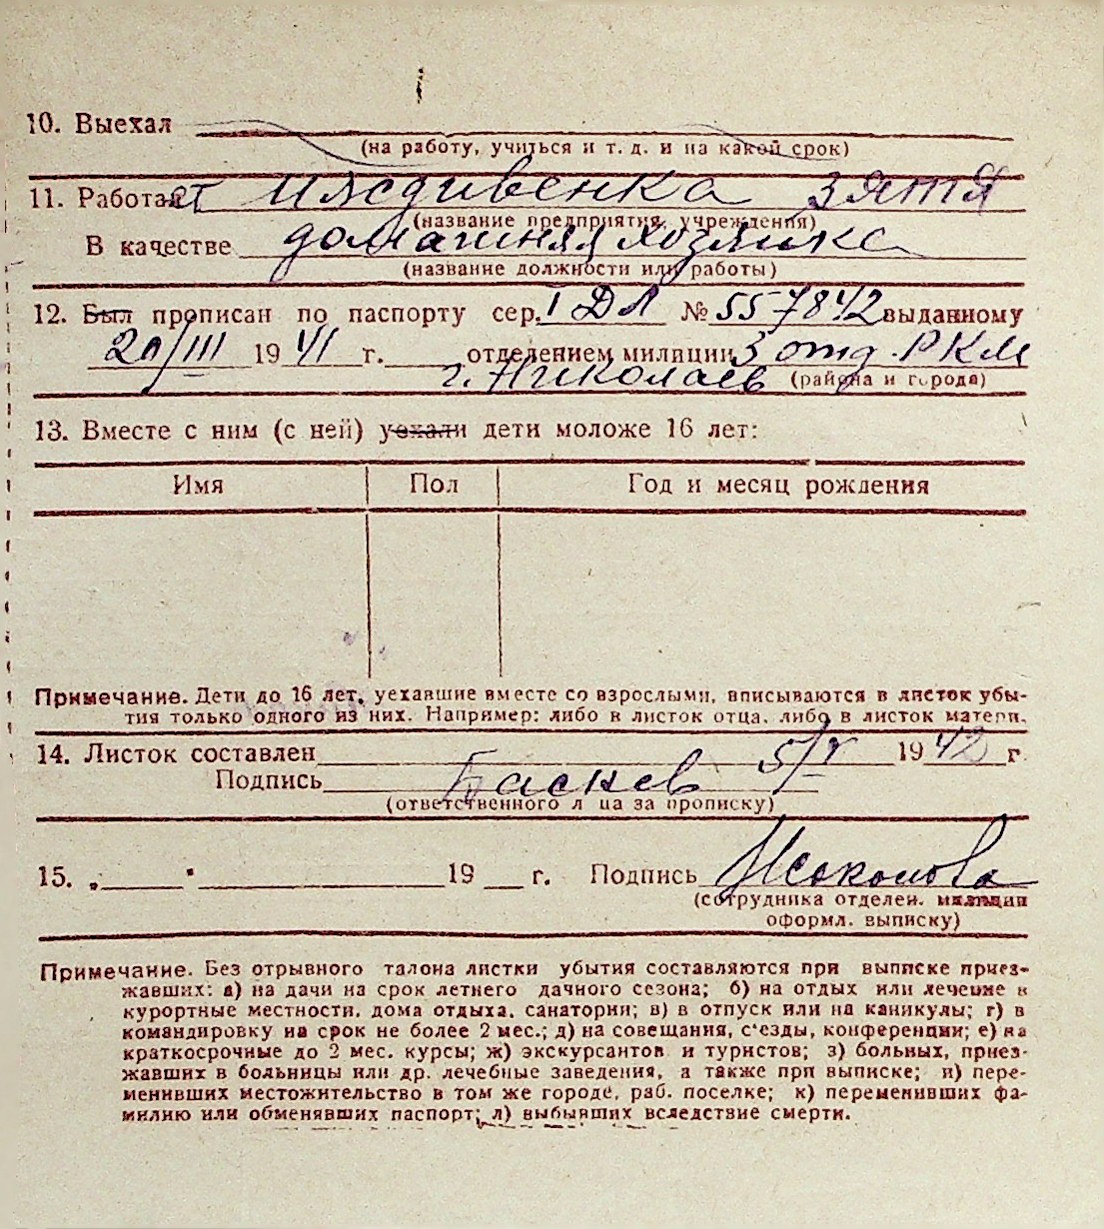 10. Выехал
(на работу, учиться и т. д. и на какой срок)
11. Работает иждивенка зятя
(название предприятия, учреждения)
В качестве домашняя хозяйка
(название должности или работы)
12. Был прописан по паспорту сер. I ДЛ № 557842 выданному
20/III 1941 г. отделением милиции 3 отд. РКМ
г. Николаев (района и города)
13. Вместе с ним (с ней) уехали дети моложе 16 лет:
Имя Пол Год и месяц рождения
Примечание. Дети до 16 лет, уехавшие вместе со взрослыми, вписываются в листок убы-
тия только одного из них. Например: либо в листок отца, либо в листок матери.
14. Листок составлен 5/V 1942 г.
Подпись
(ответственного лица за прописку)
15. „ " 19 г. Подпись Исоколова
(сотрудника отделен. милиции
оформл. выписку)
Примечание. Без отрывного талона листки убытия составляются при выписке приез-
жавших: а) на дачи на срок летнего дачного сезона; б) на отдых или лечение в
курортные местности, дома отдыха, санатории; в) в отпуск или на каникулы; г) в
командировку на срок не более 2 мес.; д) на совещания, с'езды, конференции; е) на
краткосрочные до 2 мес. курсы; ж) экскурсантов и туристов; з) больных, приез-
жавших в больницы или др. лечебные заведения, а также при выписке; и) пере-
менивших местожительство в том же городе, раб. поселке; к) переменивших фа-
милию или обменявших паспорт; л) выбывших вследствие смерти.